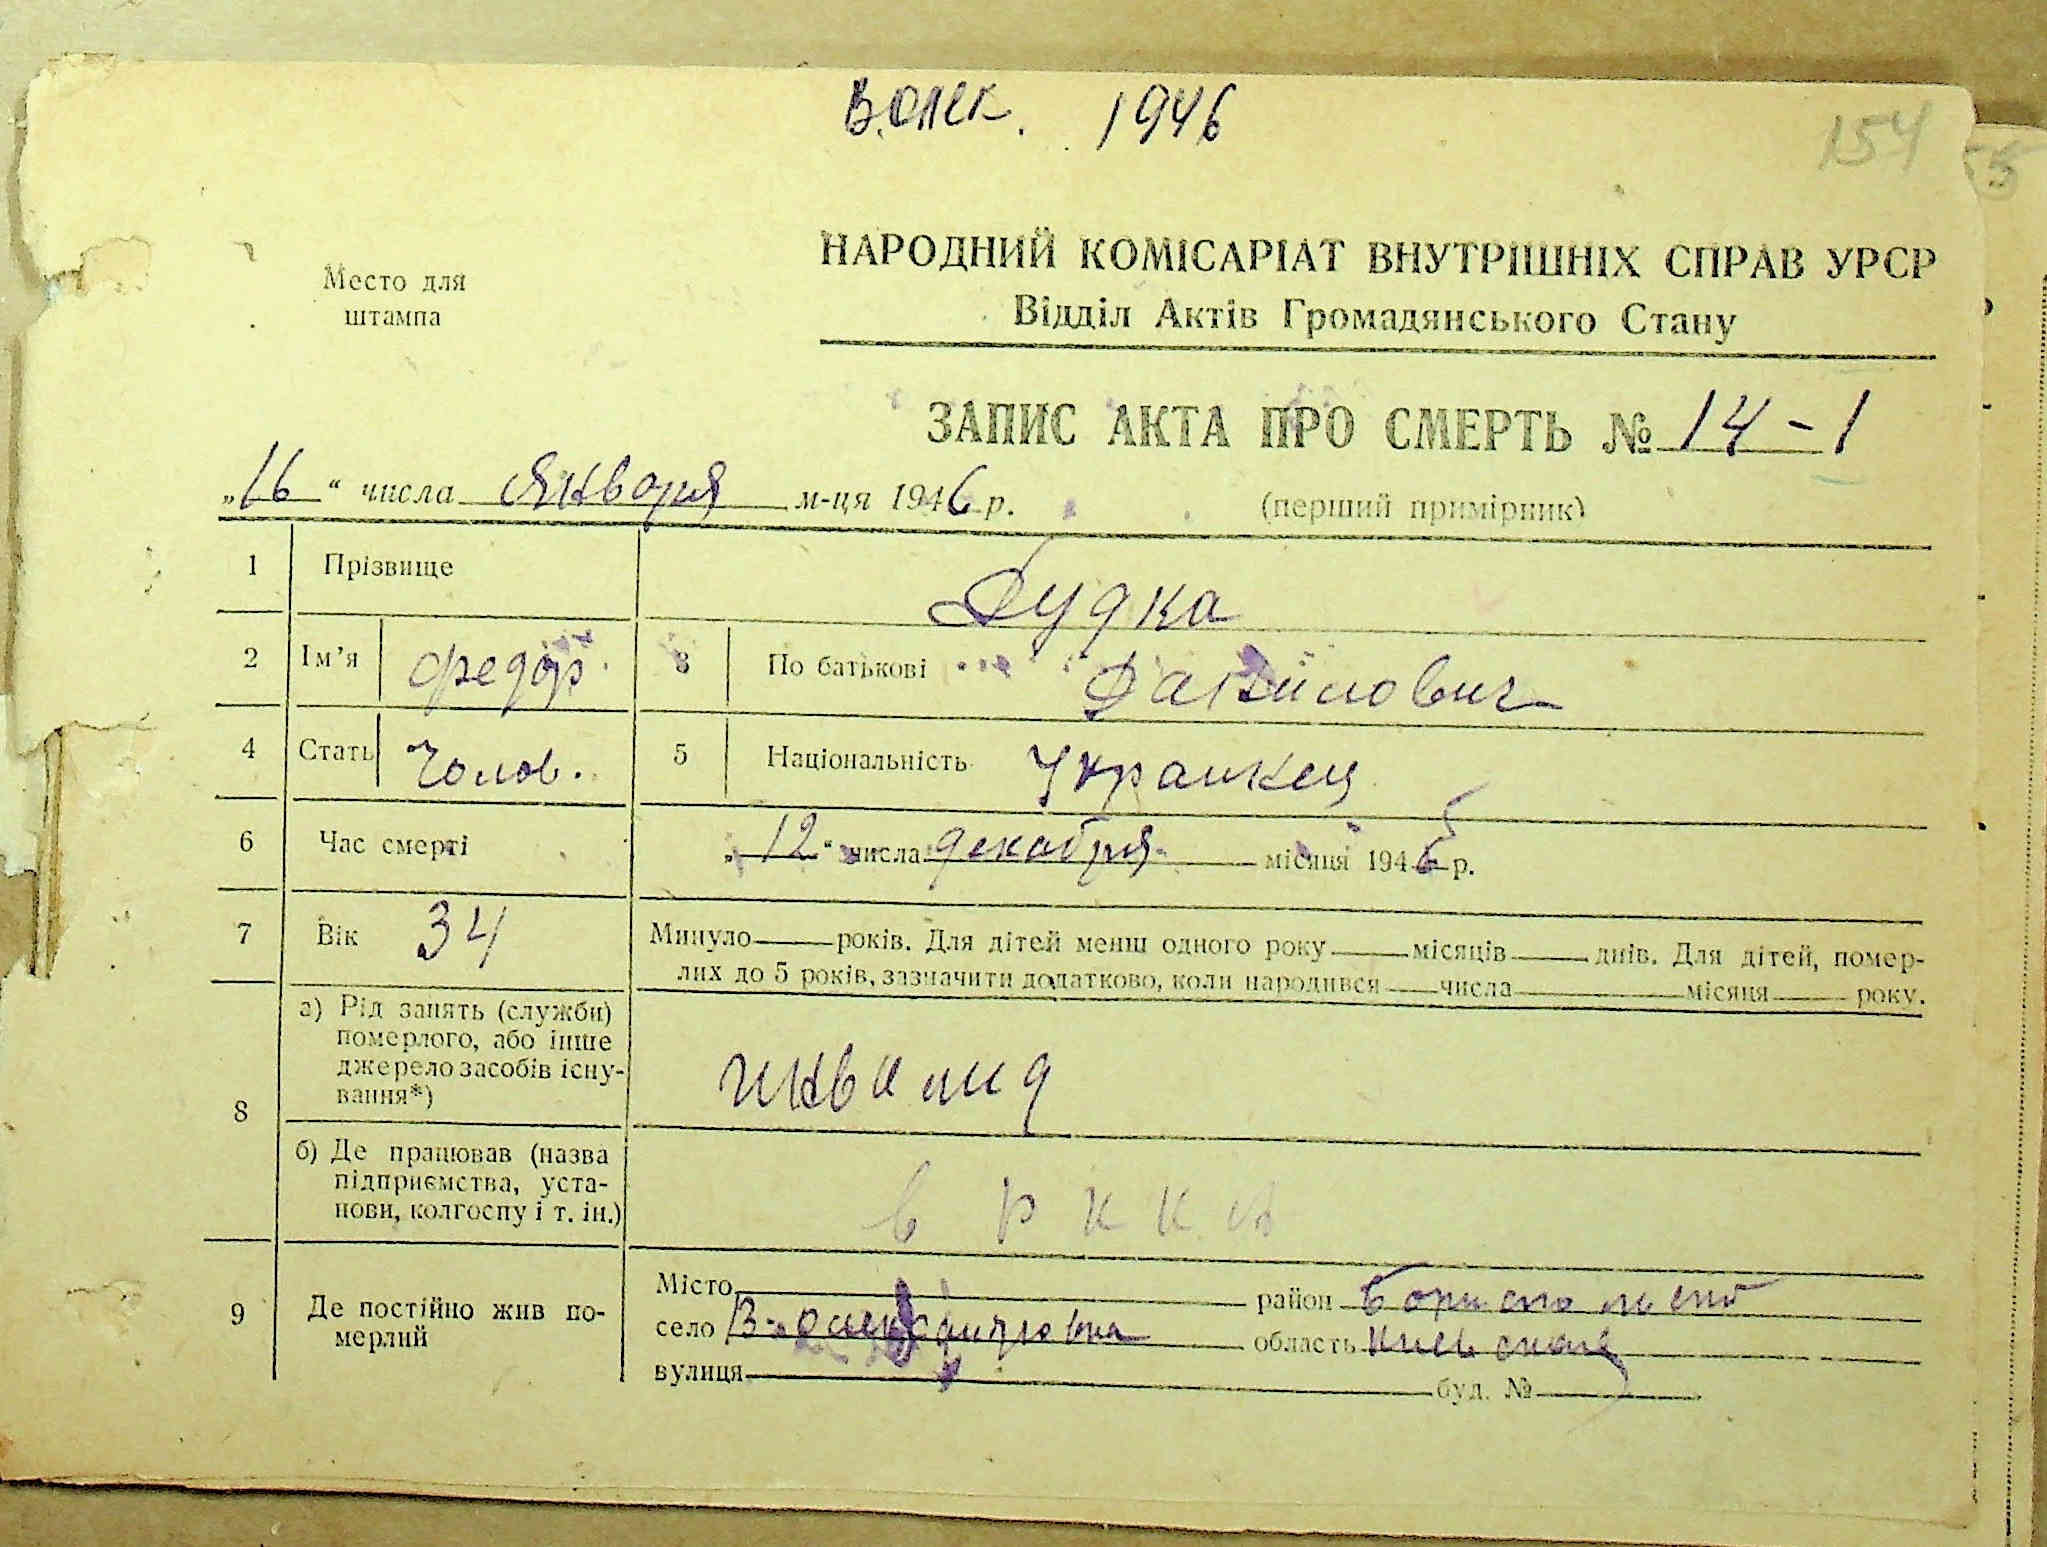 В.Олек. 1946
154
55
Место для
штампа
НАРОДНИЙ КОМІСАРІАТ ВНУТРІШНІХ СПРАВ УРСР
Відділ Актів Громадянського Стану
ЗАПИС АКТА ПРО СМЕРТЬ № 14-1
„16“ числа Января м-ця 1946 р. (перший примірник)
1 Прізвище Дудка
2 Ім’я Федор 3 По батькові Данилович
4 Стать Чолов. 5 Національність Украинец
6 Час смерті „12“ числа декабря місяця 194 р.
7 Вік 34 Минуло років. Для дітей менш одного року місяців днів. Для дітей, помер-
лих до 5 років, зазначити додатково, коли народився числа місяця року.
8 а) Рід занять (служби)
померлого, або інше
джерело засобів існу-
вання*) инвалид
б) Де працював (назва
підприємства, уста-
нови, колгоспу і т. ін.) в РККА
9 Де постійно жив по-
мерлий
Місто район Бориспольский
село В-Олександровка область Киевская
вулиця буд. №